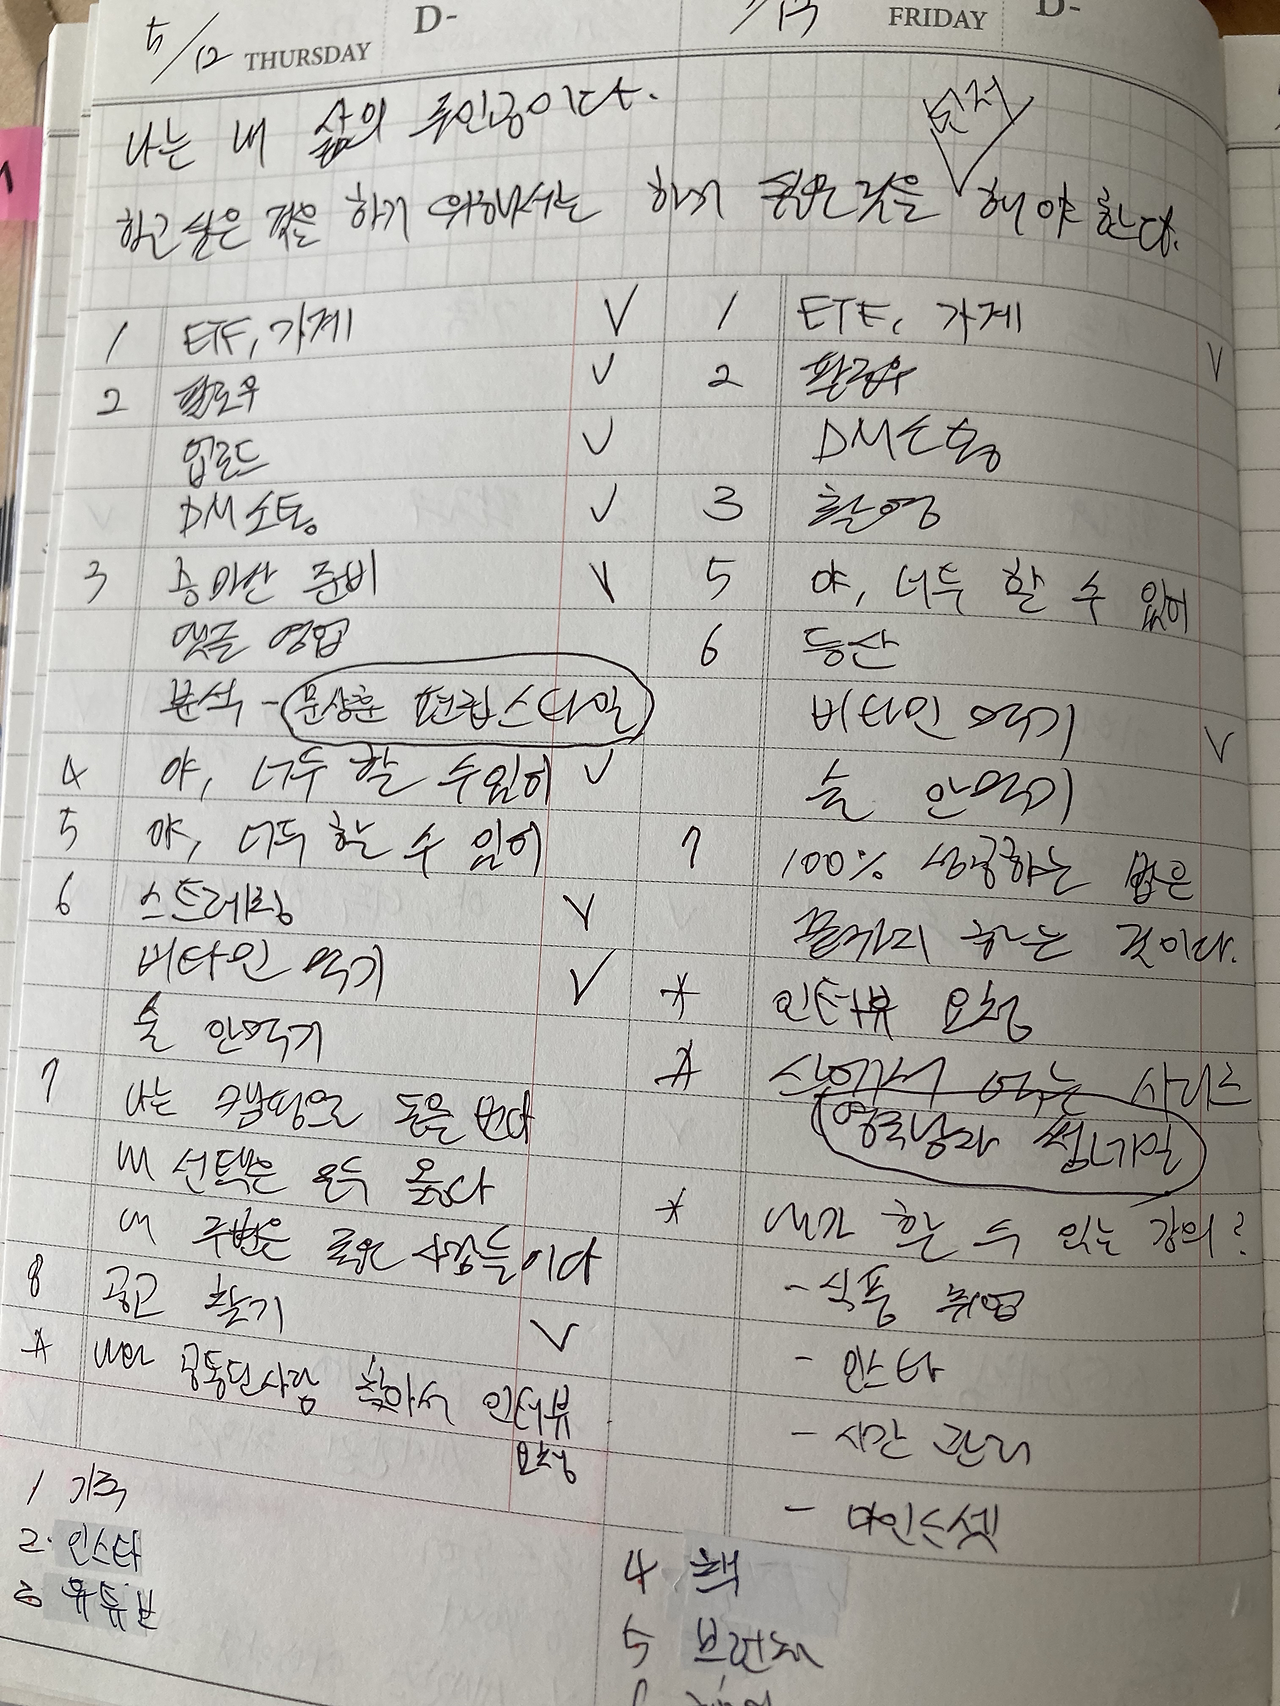 5/12 THURSDAY D-
/13 FRIDAY D-
나는 내 삶의 주인공이다.
먼저
하고 싶은 것을 하기 위해서는 하기 싫은 것을 해야 한다.
1 ETF, 가계 V
2 팔로우 V
업로드 V
DM소통 V
3 용마산 준비 V
댓글 영업
분석 - 문상훈 편집스타일
4 야, 너두 할 수 있어 V
5 야, 너두 할 수 있어
6 스트레칭 V
비타민 먹기 V
술 안먹기
7 나는 돈을 번다
내 선택은 모두 옳다
내 주변은 사람들이다
8 공고 찾기 V
☆ 나와 공통된 사람 찾아서 인터뷰
요청
1 가족
2. 인스타
3 유튜브
1 ETF, 가계 V
2 팔로우
DM소통
3 촬영
5 야, 너두 할 수 있어
6 등산
비타민 먹기 V
술 안먹기
7 100% 성공하는 법은
끝까지 하는 것이다.
* 인터뷰 요청
☆ 시리즈
영국남자 썸네일
* 내가 할 수 있는 강의?
- 식품 취업
- 인스타
- 시간 관리
- 마인드셋
4. 책
5 브런치